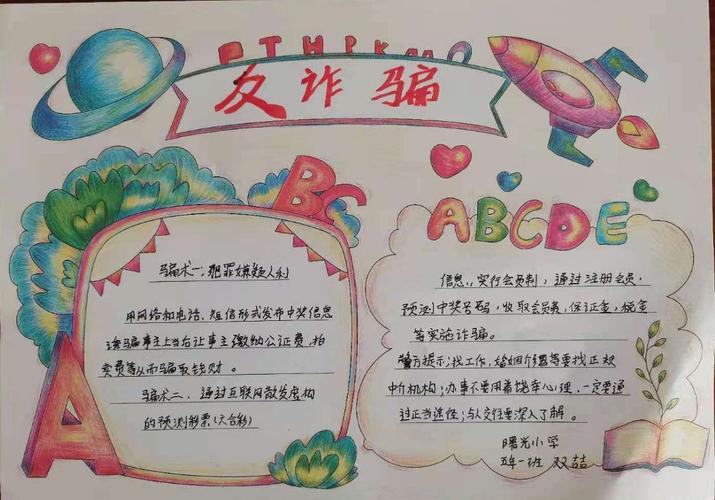 反诈骗
BC
A
ABCDE
骗术一:犯罪嫌疑人利
用网络和电话、短信形式发布中奖信息
事主上当后让事主缴纳公证费、拍
卖费等从而骗取钱财。
骗术二、通过互联网散发虚构
的预测彩票(六合彩)
信息,,实行会员制,通过注册会员,
预测中奖号码,收取会员费,保证金,税金
等实施诈骗。
警方提示:找工作、婚姻介绍等要找正规
中介机构;办事不要用着侥幸心理,一定要通
过正当途径;与人交往要深入了解。
曙光小学
五年一班 双喆